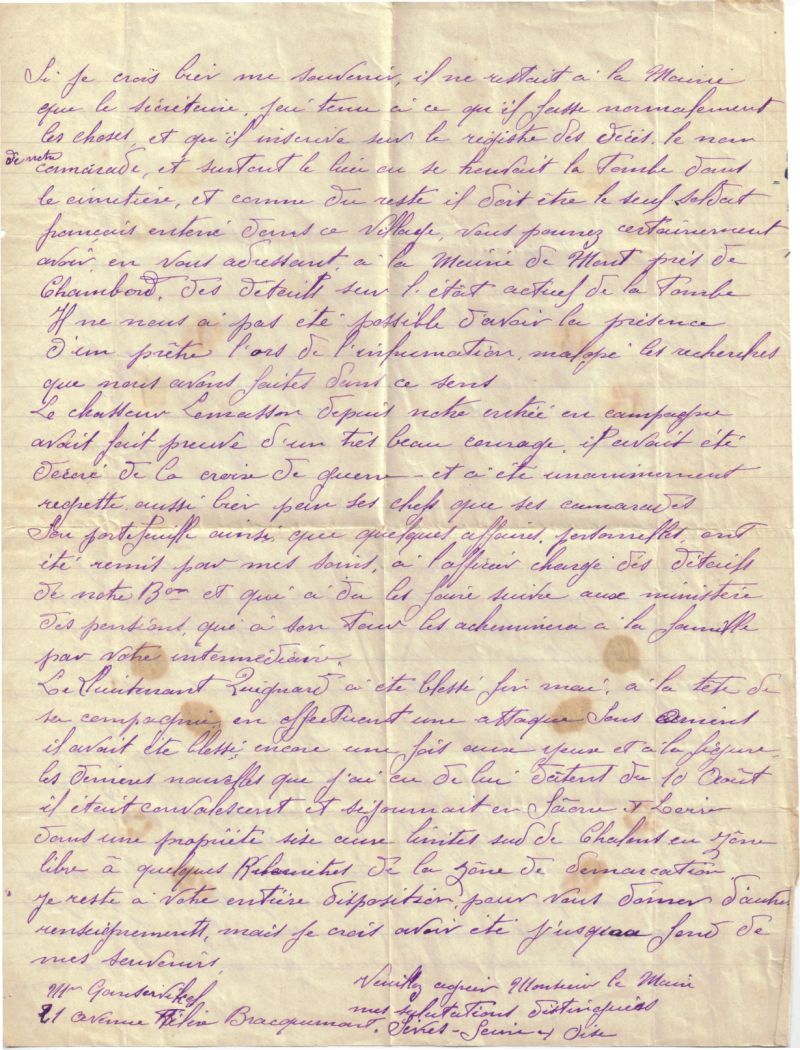 Si je crois bien me souvenir, il ne restait à la Mairie
que le sécrétaire, j'ai tenu à ce qu'il fasse normalement
les choses, et qu'il inscrive sur le régistre des décès, le nom
de notre camarade, et surtout le lieu ou se trouvait la Tombe dans
le cimetière, et comme du reste il doit être le seul soldat
français enterré dans ce village, vous pourrez certainement
avoir, en vous adressant, à la Mairie de Mont près de
Chambord, des détails sur l'état actuel de la Tombe
Il ne nous à pas été possible d'avoir la présence
d'un prêtre lors de l'inhumation, malgré les recherches
que nous avons faites dans ce sens
Le chasseur Lemasson depuis notre entrée en campagne
avait fait preuve d'un très beau courage, il avait été
décoré de la croix de guerre - et à été unanimement
regretté aussi bien par ses chefs que ses camarades
Son portefeuille ainsi que quelques affaires personnelles, ont
été remis par mes soins, à l'officier chargé des détails
de notre Bon et qui à du les faire suivre aux ministère
des pensions, qui à son tour les acheminera à la famille
par votre intermédiaire.
Le lieutenant Quignard à été blessé fin mai, à la tête de
sa compagnie en effectuent une attaque sous Amiens
il avait été blessé encore une fois aux yeux et à la figure,
les dernieres nouvelles que j'ai eu de lui datent du 10 Août
il était convalescent et séjournait en Sâone & Loire
dans une propriété sise aux limites sud de Chalons en zône
libre à quelques Kilomètres de la zône de démarcation
Je reste à votre entière disposition, pour vous donner d'autres
renseignements, mais je crois avoir été jusqu'au fond de
mes souvenirs,
Veuillez agréer Monsieur le Maire
mes salutations distinguées
Mr
21 avenue Bracquemont. Sèvres - Seine & Oise